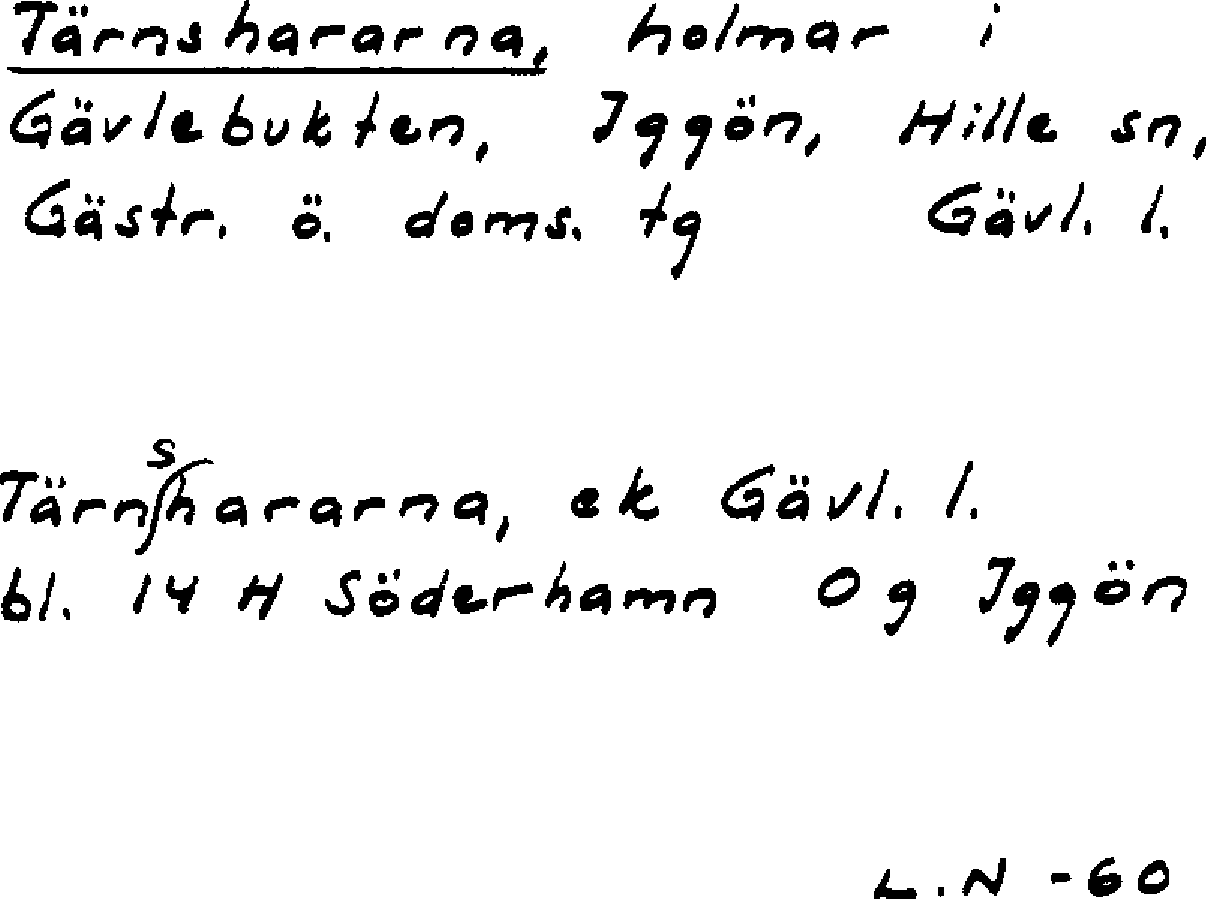 Tärnshararna, holmar i
Gävlebukten, Iggön, Hille sn,
Gästr. ö. doms. tg Gävl. l.
Tärnshararna, ek Gävl. l.
bl. 14 H Söderhamn O g Iggön
L.N -60